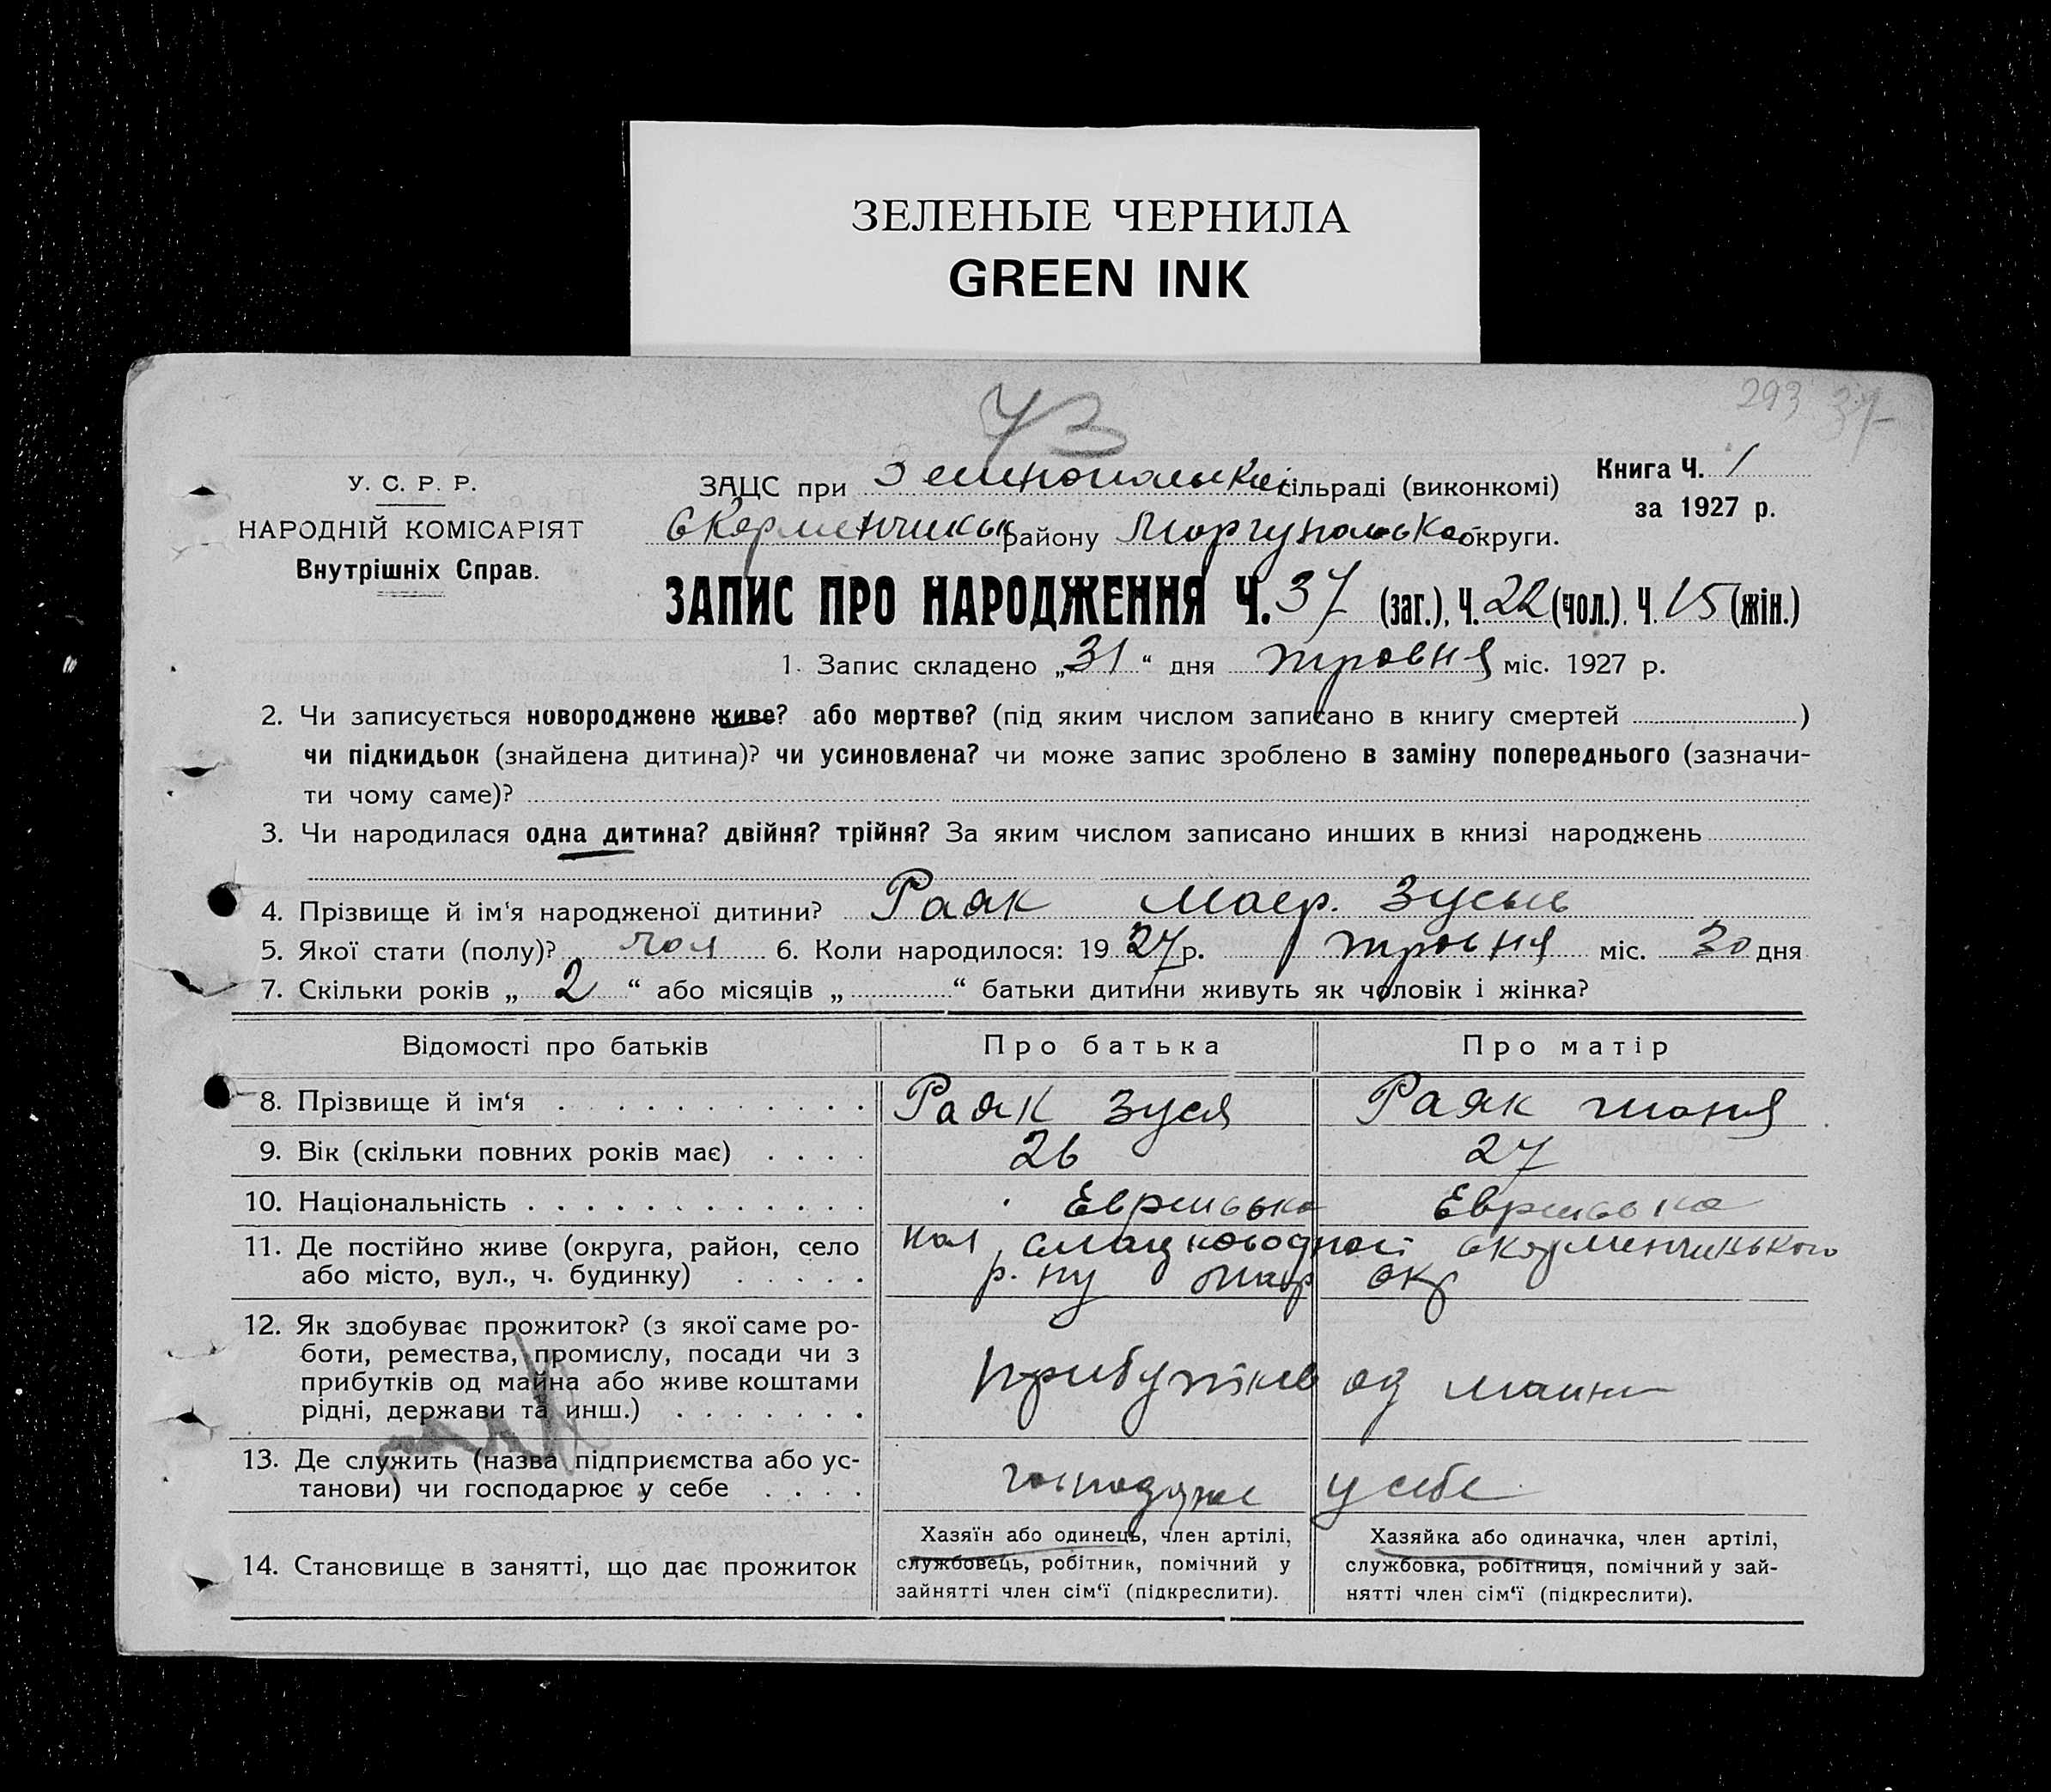 ЗЕЛЕНЫЕ ЧЕРНИЛА
GREEN INK
43
293 37
У. С. Р. Р.
НАРОДНІЙ КОМІСАРІЯТ
Внутрішніх Справ.
ЗАЦС при сільраді (виконкомі)
району округи.
Книга Ч. 1
за 1927 р.
ЗАПИС ПРО НАРОДЖЕННЯ Ч. 37 (заг.), Ч. 22 (чол.). Ч. 15 (жін.)
1. Запис складено „31“ дня травня міс. 1927 р.
2. Чи записується новороджене живе? або мертве? (під яким числом записано в книгу смертей )
чи підкидьок (знайдена дитина)? чи усиновлена? чи може запис зроблено в заміну попереднього (зазначи-
ти чому саме)?
3. Чи народилася одна дитина? двійня? трійня? За яким числом записано инших в книзі народжень
4. Прізвище й ім'я народженої дитини? Раяк
5. Якої стати (полу)? чол 6. Коли народилося: 1927 р. травня міс. 30 дня
7. Скільки років „2“ або місяців „ “ батьки дитини живуть як чоловік і жінка?
Відомості про батьків Про батька Про матір
8. Прізвище й ім'я Раяк Зуся Раяк
9. Вік (скільки повних років має) 26 27
10. Національність Еврейська Еврейська
11. Де постійно живе (округа, район, село
або місто, вул., ч. будинку) окр
12. Як здобуває прожиток? (з якої саме ро-
боти, ремества, промислу, посади чи з
прибутків од майна або живе коштами
рідні, держави та инш.) прибутків од майна
13. Де служить (назва підприємства або ус-
танови) чи господарює у себе господарює у себе
14. Становище в занятті, що дає прожиток
Хазяїн або одинець, член артілі,
службовець, робітник, помічний у
зайнятті член сім'ї (підкреслити).
Хазяйка або одиначка, член артілі,
службовка, робітниця, помічний у зай-
нятті член сім'ї (підкреслити).